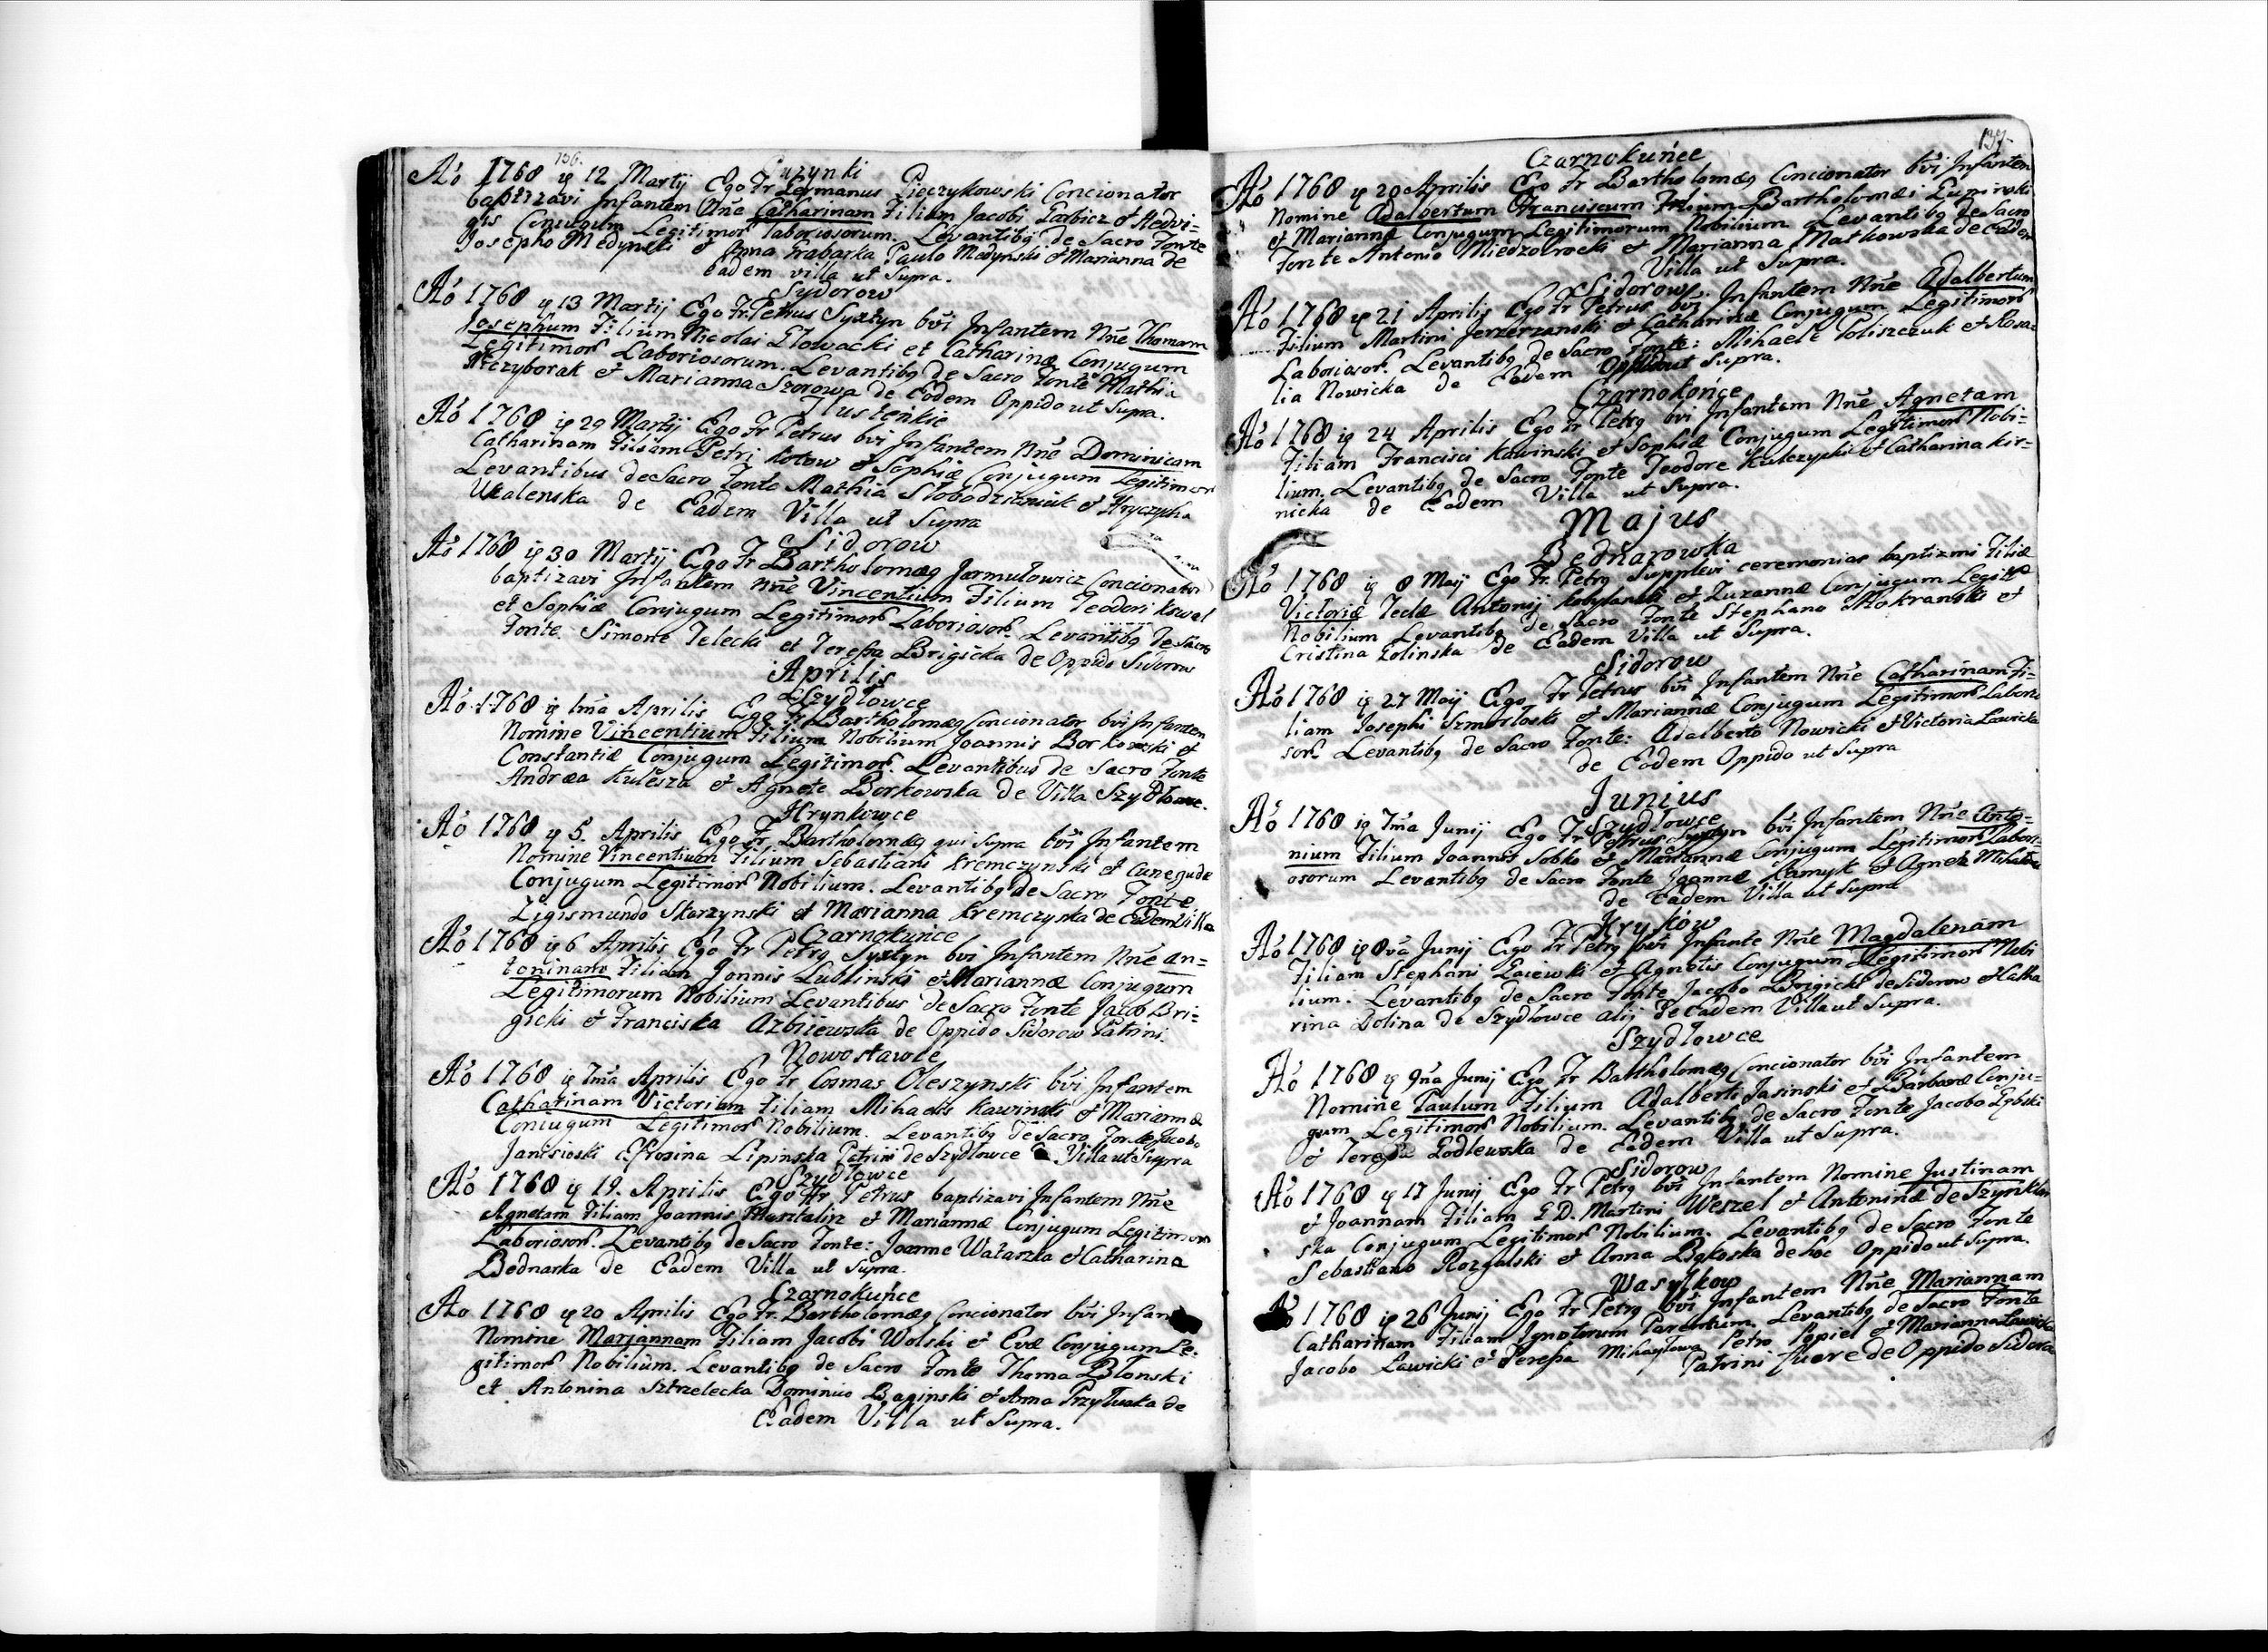 136.
Czynki
Ao 1768 ip 12 Martij Ego Fr Germanus Pieczykowski Concionator
baptizavi Infantem Nñe Catharinam Filiam Jacobi Garbicz et Hedvi=
gis Conjugum Legitimor laboriosorum. Levantibg de Sacro Fonte
Josepho Medynski et Anna Grabarka Paulo Medynski et Marianna de
Eadem villa ut Supra.
Sydorow
Ao 1768 ip 13 Martij Ego Fr. Petrus Syxtyn bvi Infantem Nñe Thomam
Josephum Filium Nicolai Głowacki et Catharinæ Conjugum
Legitimor Laboriosorum. Levantibg de Sacro Fonte Mathia
Krczyborak et Marianna Szorowa de Eodem Oppido ut Supra.
Tlusteńkie
Ao 1768 ip 29 Martij Ego Fr Petrus bvi Infantem Nñe Dominicam
Catharinam Filiam Petri Kotow et Sophiæ Conjugum Legitimor
Levantibus de Sacro Fonte Mathia Słobodzianiuk et Hryczycha
Ukalenska de Eadem Villa ut Supra
Sidorow
Ao 1768 ip 30 Martij Ego Fr Bartholomæg Jarmułowicz Concionator
baptizavi Infantem Nñe Vincentium Filium Teodori Kowal
et Sophiæ Conjugum Legitimor Laboriosor. Levantibg de Sacro
Fonte Simone Telecki et Teressa Brigicka de Oppido Sidorow
Aprilis
Szydłowce
Ao 1768 ip 1ma Aprilis Ego Fr Bartholomæg Concionator bvi Infantem
Nomine Vincentium Filium Nobilium Joannis Borkowski et
Constantiæ Conjugum Legitimor. Levantibus de Sacro Fonte
Andræa Kulesza et Agnete Borkowska de Villa Szydłowce.
Hrynkowce
Ao 1768 ip 5. Aprilis Ego Fr Bartholomæg qui Supra bvi Infantem
Nomine Vincentium Filium Sebastiani Kremczynski et Cunegude
Conjugum Legitimor Nobilium. Levantibg de Sacro Fonte
Zigismundo Skarzynski et Marianna Kremczyska de Eadem Villa
Czarnokuńce
Ao 1768 ip 6 Aprilis Ego Fr Petrg Syxtyn bvi Infantem Nñe An=
toninam Filiam Jonnis Lublinski et Mariannæ Conjugum
Legitimorum Nobilium Levantibus de Sacro Fonte Jacob Bri=
gicki et Franciska Azbijewska de Oppido Sidorow Patrini.
Nowostawce
Ao 1768 ip 7ma Aprilis Ego Fr Cosmas Oleszynski bvi Infantem
Catharinam Victoriam Filiam Mihaelis Kawinski et Mariannæ
Conjugum Legitimor Nobilium. Levantibg de Sacro Fonte Jacobo
Janisioski Efrosina Lipinska Patrini de Szydłowce Villa ut Supra
Szydłowce
Ao 1768 ip 19. Aprilis Ego Fr Petrus baptizavi Infantem Nñe
Agnetam Filiam Joannis Muntalin et Mariannæ Conjugum Legitimor
Laboriosor. Levantibg de Sacro Fonte: Joanne Watarzka et Catharina
Bednarka de Eadem Villa ut Supra.
Czarnokuńce
Ao 1768 ip 20 Aprilis Ego Fr. Bartholomæg Concionator bvi Infan
Nomine Mariannam Filiam Jacobi Wolski et Evæ Conjugum Le=
gitimor Nobilium. Levantibg de Sacro Fonte Thoma Błonski
et Antonina Sztrzelecka Dominico Baginski et Anna Przyłuska de
Eadem Villa ut Supra.
137.
Czarnokuńce
Ao 1768 ip 20 Aprilis Ego Fr Bartholomæg Concionator bvi Infantem
Nomine Adalbertum Franciscum Filium Bartholomæi Gupinski
et Mariannæ Conjugum Legitimorum Nobilium Levantibg de Sacro
Fonte Antonio Miedzobrocki et Marianna Małkowska de Eadem
Villa ut Supra.
Sidorow.
Ao 1768 ip 21 Aprilij Ego Fr Petrus bvi Infantem Nñe Adalbertum
Filium Martini Jerzerzanski et Catharinæ Conjugum Legitimor
Laboriosor. Levantibg de Sacro Fonte: Mihaele Poliszczuk et Rosa=
lia Nowicka de Eodem Oppido ut Supra.
Czarnokońce
Ao 1768 ip 24 Aprilis Ego Fr Petrg bvi Infantem Nñe Agnetam
Filiam Francisci Kawinski et Sophiæ Conjugum Legitimor Nobi=
lium. Levantibg de Sacro Fonte Teodore Kulczycki et Catharina Kir=
nicka de Eadem Villa ut Supra.
Majus
Bednarowka
Ao 1768 ip 8 Maij Ego Fr. Petrg Supplevi ceremonias baptizmi Filiæ
Victoriæ Teclæ Antonij Kobylanski et Zuzannæ Conjugum Legitr
Nobilium Levantibg de Sacro Fonte Stephano Mokranski et
Cristina Golinska de Eadem Villa ut Supra.
Sidorow
Ao 1768 ip 27 Maij Ego Fr Petrus bvi Infantem Nñe Catharinam Fi=
liam Josephi Szmorloski et Mariannæ Conjugum Legitimor Laborio
sor. Levantibg de Sacro Fonte: Adalberto Nowicki et Victoria Lawicka
de Eodem Oppido ut Supra
Junius
Szydłowce
Ao 1768 ip 7ma Junij Ego Fr Petrus Syxtyn bvi Infantem Nñe Anto=
nium Filium Joannis Sobko et Mariannæ Conjugum Legitimor Labori=
osorum Levantibg de Sacro Fonte Joanne Kamyk et Agnete
de Eadem Villa ut Supra
Kryków
Ao 1768 ip 8va Junij Ego Fr Petrg bvi Infante Nñe Magdalenam
Filiam Stephani Gaiewski et Agnetis Conjugum Legitimor Nobi
lium. Levantibg de Sacro Fonte Jacobo Brigicki de Sidorow et Catha
rina Dolina de Szydłowce alij de Eadem Villa ut Supra.
Szydłowce
Ao 1768 ip 9na Junij Ego Fr Bartholomæg Concionator bvi Infantem
Nomine Paulum Filium Adalberti Jasinski et Barbaræ Conju=
gum Legitimor Nobilium. Levantibg de Sacro Fonte Jacobo Egbski
et Teressa Godlewska de Eadem Villa ut Supra.
Sidorow
Ao 1768 ip 17 Junij Ego Fr Petrg bvi Infantem Nomine Justinam
et Joannam Filiam G D. Martini Weszel et Antoninæ de Szynklar
ska Conjugum Legitimor Nobilium. Levantibg de Sacro Fonte
Sebastiano Rozgalski et Anna Bgkoska de hoc Oppido ut Supra.
Wasylkow
Ao 1768 ip 26 Junij Ego Fr Petrg bvi Infantem Nñe Mariannam
Catharinam Filiam Ignotorum Parentum. Levantibg de Sacro Fonte
Jacobo Ławicki et Teressa Mihayłowa Petro Popiel et Marianna Lawicka
Patrini fuere de Oppido Sidorow